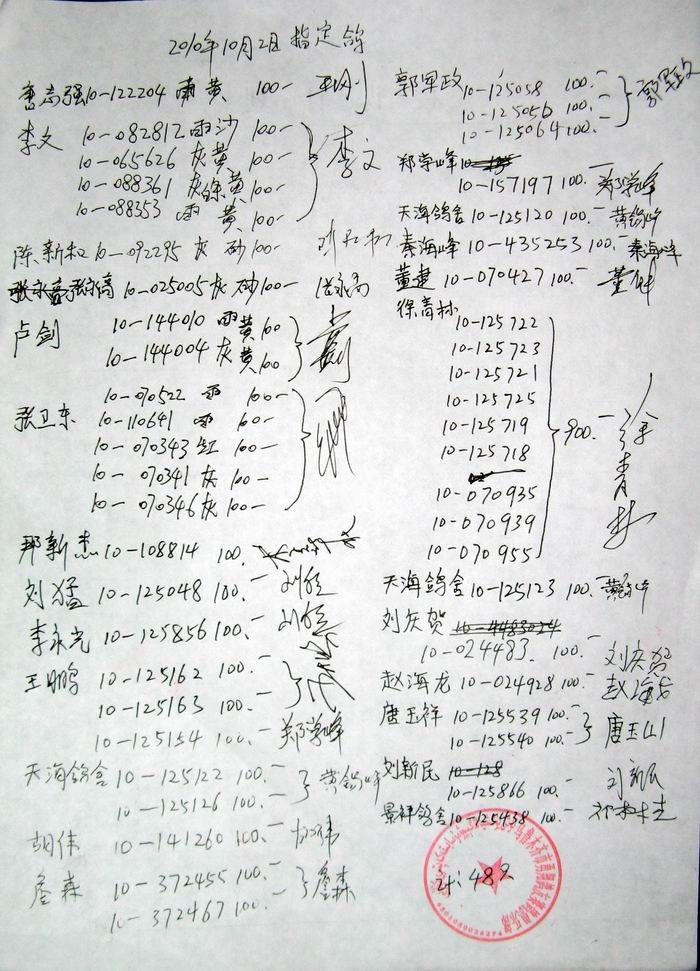 2010年10月2日 指定鸽
10-122204 雨黄 100-
李文 10-082812 雨沙 100- 李文
10-065626 灰黄 100-
10-088361 灰绿黄 100-
10-088353 雨黄 100-
陈新权 10-092295 灰砂 100-
张永高 10-025005 灰砂 100-
卢剑 10-144010 雨黄 100
10-144004 灰黄 100
10-070522 雨 100-
张卫东 10-110641 雨 100-
10-070343 红 100-
10-070341 灰 100-
10-070346 灰 100-
郑新杰 10-108814 100.-
刘猛 10-125048 100.-
李永光 10-125856 100.-
王鹏 10-125162 100.-
10-125163 100.-
10-125154 100.- 郑学峰
天海鸽舍 10-125122 100.- 黄锦峰
10-125126 100.-
胡伟 10-141260 100. 胡伟
詹森 10-372455 100.- 詹森
10-372467 100.-
郭军政 10-125058 100.- 郭军政
10-125056 100.-
10-125064 100.-
郑学峰
10-157197 100.- 郑学峰
天海鸽舍 10-125120 100.- 黄锦峰
秦海峰 10-435253 100.- 秦海峰
董建 10-070427 100.-
徐青林
10-125722
10-125723
10-125721
10-125725
10-125719 900.- 徐青林
10-125718
10-070935
10-070939
10-070955
天海鸽舍 10-125123 100.- 黄锦峰
刘庆贺
10-024483 100.- 刘庆贺
赵海龙 10-024928 100.- 赵海龙
唐玉祥 10-125539 100.- 唐玉山
10-125540 100.-
刘新民
10-125866 100.- 刘新民
景祥鸽舍 10-125438 100.-
计:48只